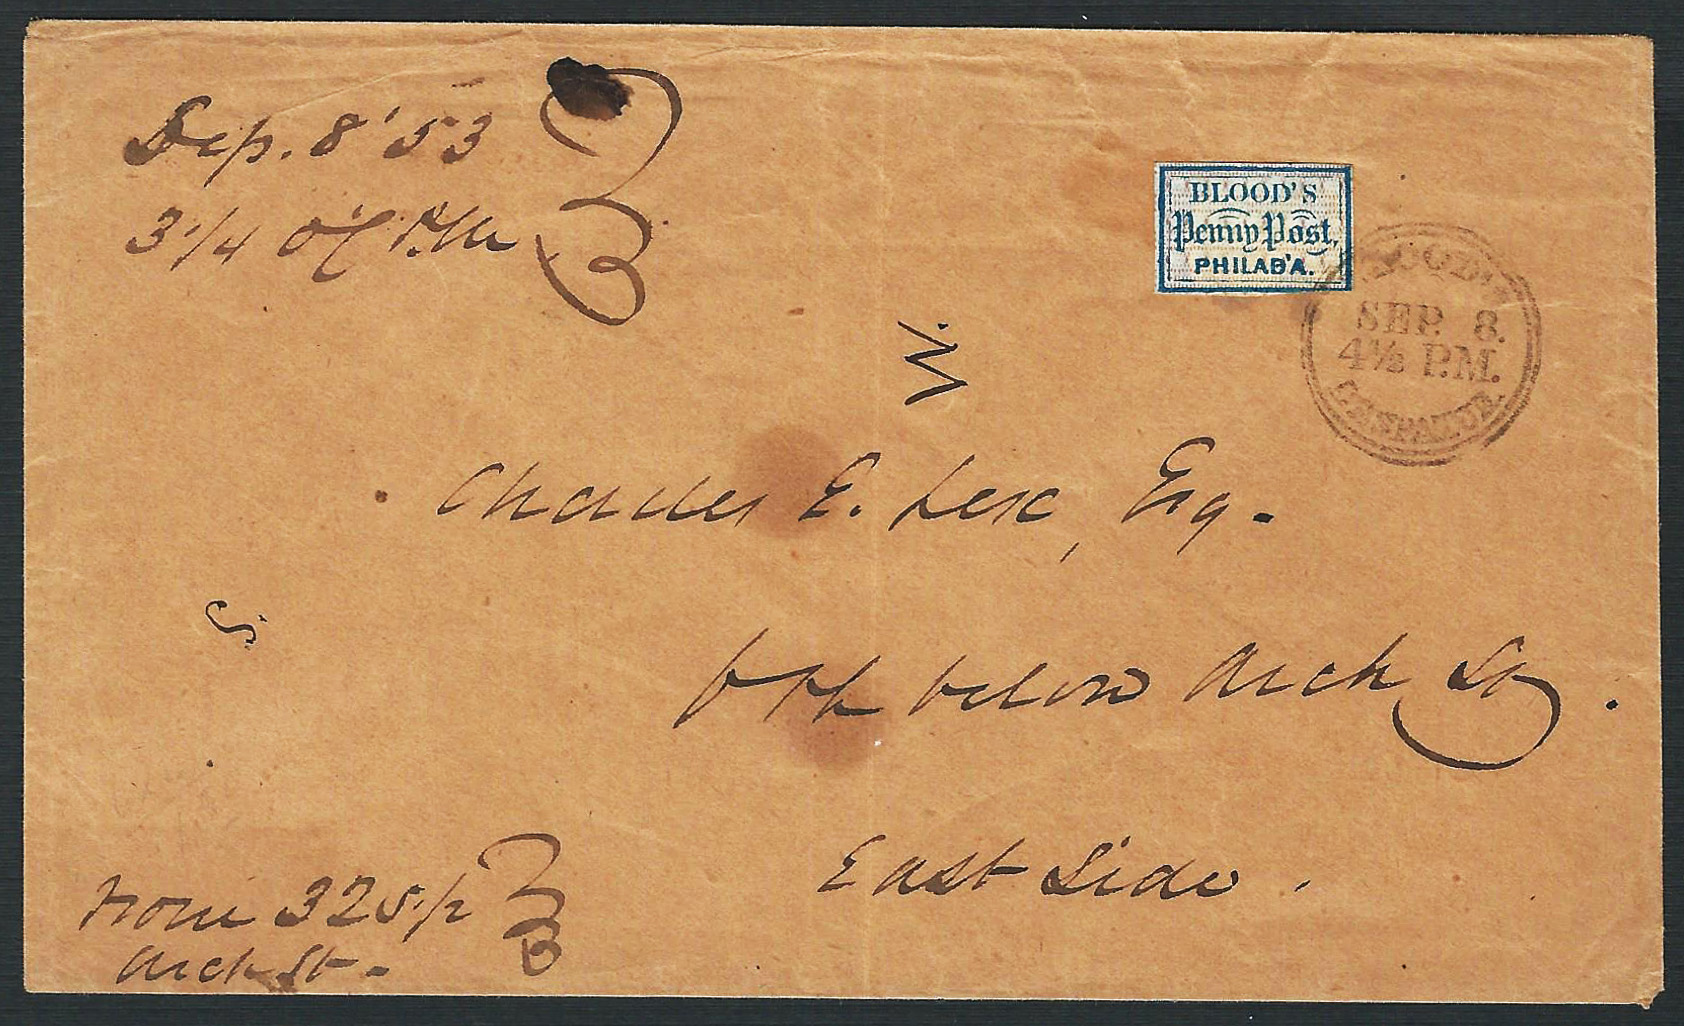 Sep. 8 '53
3 1/4 O'C P.M.
BLOOD'S
Penny Post,
PHILAD'A.
BLOOD'S
SEP. 8.
4½ P.M.
DESPATCH
W.
Charles E. Lex, Esq.
S.
6th below Arch St.
East Side.
From 325 1/2
Arch St.